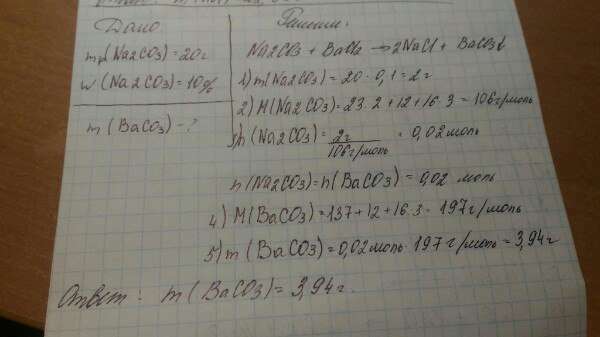 Дано
mр(Na2CO3)=20г
w(Na2CO3)=10%
m(BaCO3)-?
Решение.
Na2CO3 + BaCl2 → 2NaCl + BaCO3↓
1) m(Na2CO3)=20·0,1=2г
2) M(Na2CO3)=23·2+12+16·3=106г/моль
3) n(Na2CO3)= 2г/106г/моль = 0,02моль
n(Na2CO3)=n(BaCO3)=0,02 моль
4) M(BaCO3)=137+12+16·3=197г/моль
5) m(BaCO3)=0,02моль·197г/моль=3,94г
Ответ: m(BaCO3)=3,94г.